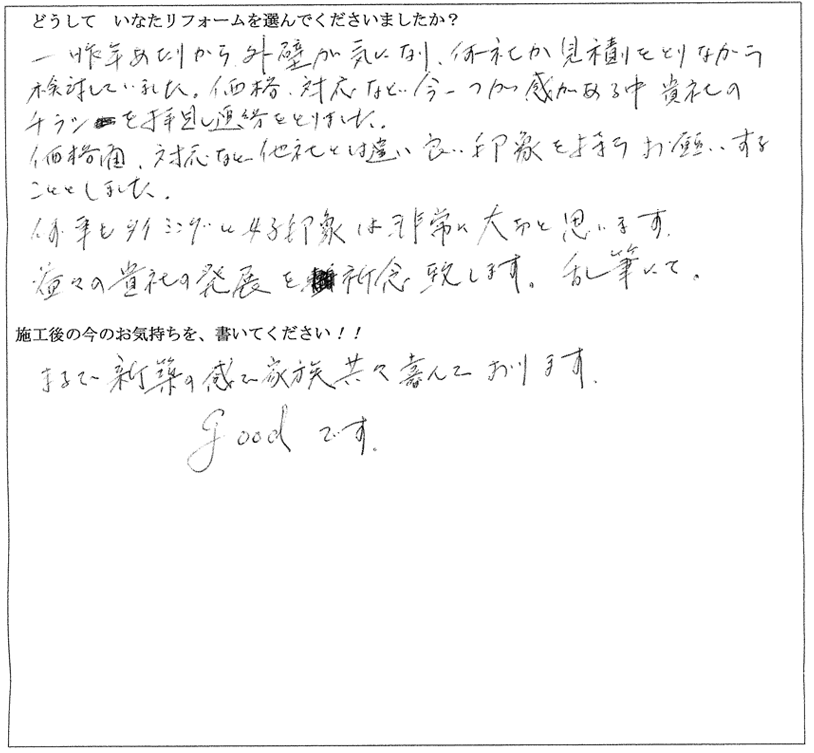 どうして　いなたリフォームを選んでくださいましたか?
一昨年あたりから外壁が気になり、何社か見積りをとりながら
検討していました。価格、対応など今一つの感がある中貴社の
チラシを拝見し連絡をとりました。
価格面、対応など他社とは違い良い印象を持ちお願いする
こととしました。
何事もタイミングと好印象は非常に大切と思います。
益々の貴社の発展を祈念致します。乱筆にて。
施工後の今のお気持ちを、書いてください!!
まるで新築の感で家族共々喜んでおります。
goodです。